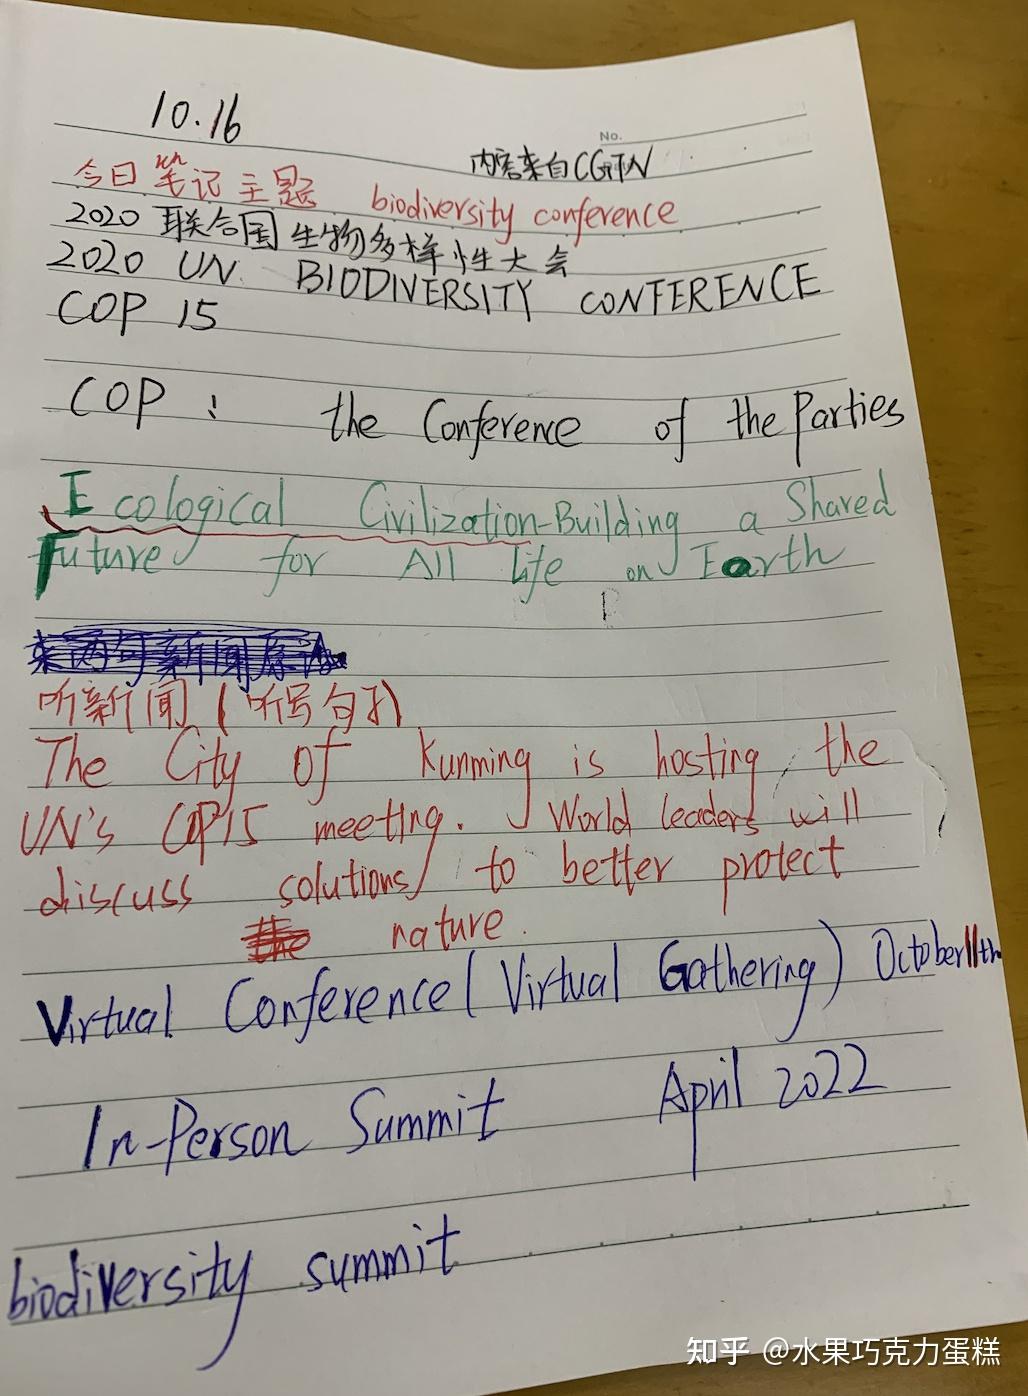 10.16
No.
内容来自CGTN
今日笔记主题 biodiversity conference
2020 联合国生物多样性大会
2020 UN BIODIVERSITY CONFERENCE
COP 15
COP: the Conference of the Parties
Ecological Civilization-Building a Shared
Future for All life on Earth
听新闻(听写句子)
The City of Kunming is hosting the
UN's COP15 meeting. World leaders will
discuss solutions to better protect
nature.
Virtual Conference (Virtual Gathering) October 11th
In-Person Summit April 2022
biodiversity summit
知乎 @水果巧克力蛋糕